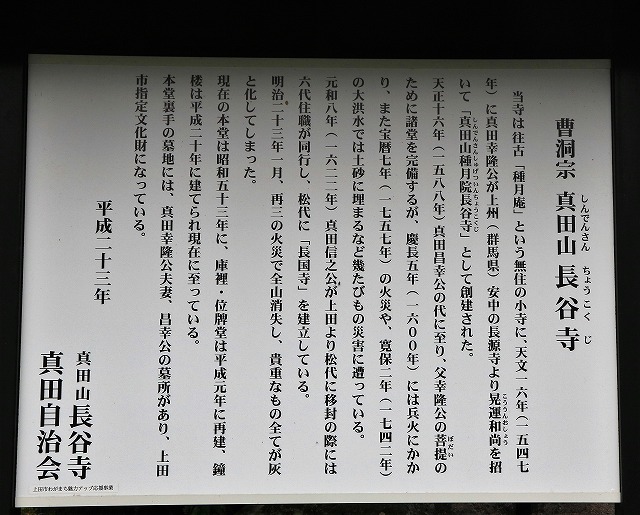 曹洞宗 真田山 長谷寺
しんでんさん ちょうこくじ
当寺は往古「種月庵」という無住の小寺に、天文一六年（一五四七
年）に真田幸隆公が上州（群馬県）安中の長源寺より晃運和尚を招
こううんおしょう
いて「真田山種月院長谷寺」として創建された。
しんでんさんしゅげついんちょうこくじ
天正十六年（一五八八年）真田昌幸公の代に至り、父幸隆公の菩提の
ぼだい
ために諸堂を完備するが、慶長五年（一六００年）には兵火にかか
り、また宝暦七年（一七五七年）の火災や、寛保二年（一七四二年）
の大洪水では土砂に埋まるなど幾たびもの災害に遭っている。
元和八年（一六二二年）真田信之公が上田より松代に移封の際には
六代住職が同行し、松代に「長国寺」を建立している。
明治二十三年一月、再三の火災で全山消失し、貴重なもの全てが灰
と化してしまった。
現在の本堂は昭和五十三年に、庫裡・位牌堂は平成元年に再建、鐘
楼は平成二十年に建てられ現在に至っている。
本堂裏手の墓地には、真田幸隆公夫妻、昌幸公の墓所があり、上田
市指定文化財になっている。
平成二十三年
真田山 長谷寺
真田自治会
上田市わがまち魅力アップ応援事業